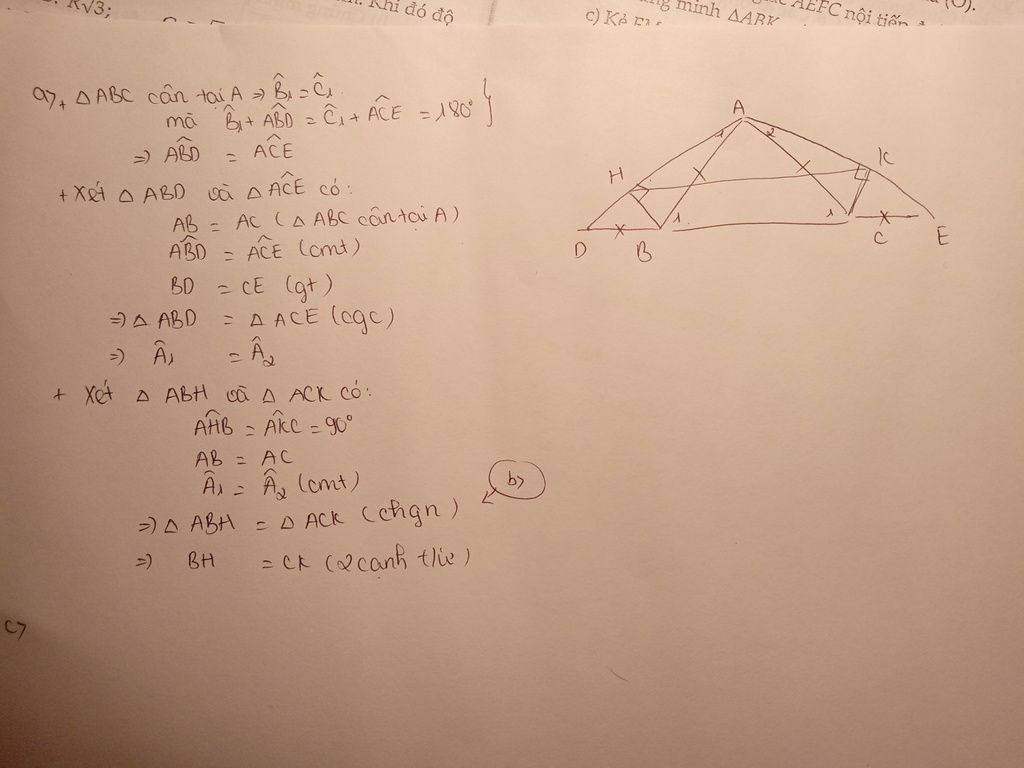 R√3;
Khi đó độ
c) Kẻ
minh ΔABK
AEFC nội tiếp
(O).
a, + Δ ABC cân tại A ⇒ B̂₁ = Ĉ₁
mà B̂₁ + ABD̂ = Ĉ₁ + ACÊ = 180° }
⇒ ABD̂ = ACÊ
+ Xét Δ ABD và Δ ACÊ có:
AB = AC ( Δ ABC cân tại A )
ABD̂ = ACÊ (cmt)
BD = CE (gt)
⇒ Δ ABD = Δ ACE (cgc)
⇒ Â₁ = Â₂
+ Xét Δ ABH và Δ ACK có:
AHB̂ = AKĈ = 90°
AB = AC
Â₁ = Â₂ (cmt)
b>
⇒ Δ ABH = Δ ACK (chgn)
⇒ BH = CK (2 cạnh t/ư)
c>
A
1 2
H K
1 1
D B C E